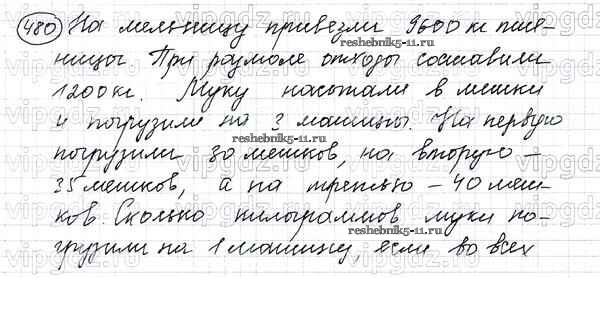 480 На мельницу привезли 9600 кг пше-
ницы. При размоле отходы составили
1200 кг. Муку насыпали в мешки
и погрузили на 3 машины. На первую
погрузили 30 мешков, на вторую –
35 мешков, а на третью – 40 меш-
ков. Сколько килограммов муки по-
грузили на 1 машину, если во всех
reshebnik5-11.ru
reshebnik5-11.ru
reshebnik5-11.ru
vipgdz.ru